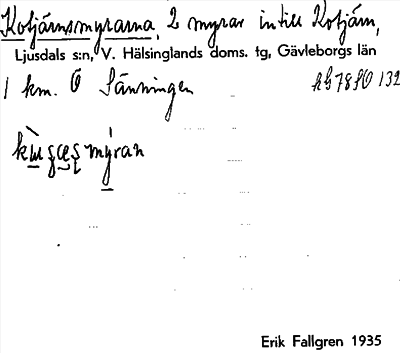 Kotjärnsmyrarna, 2 myrar intill Kotjärn,
Ljusdals s:n, V. Hälsinglands doms. tg, Gävleborgs län
1 km. Ö Sänningen
myran
Erik Fallgren 1935